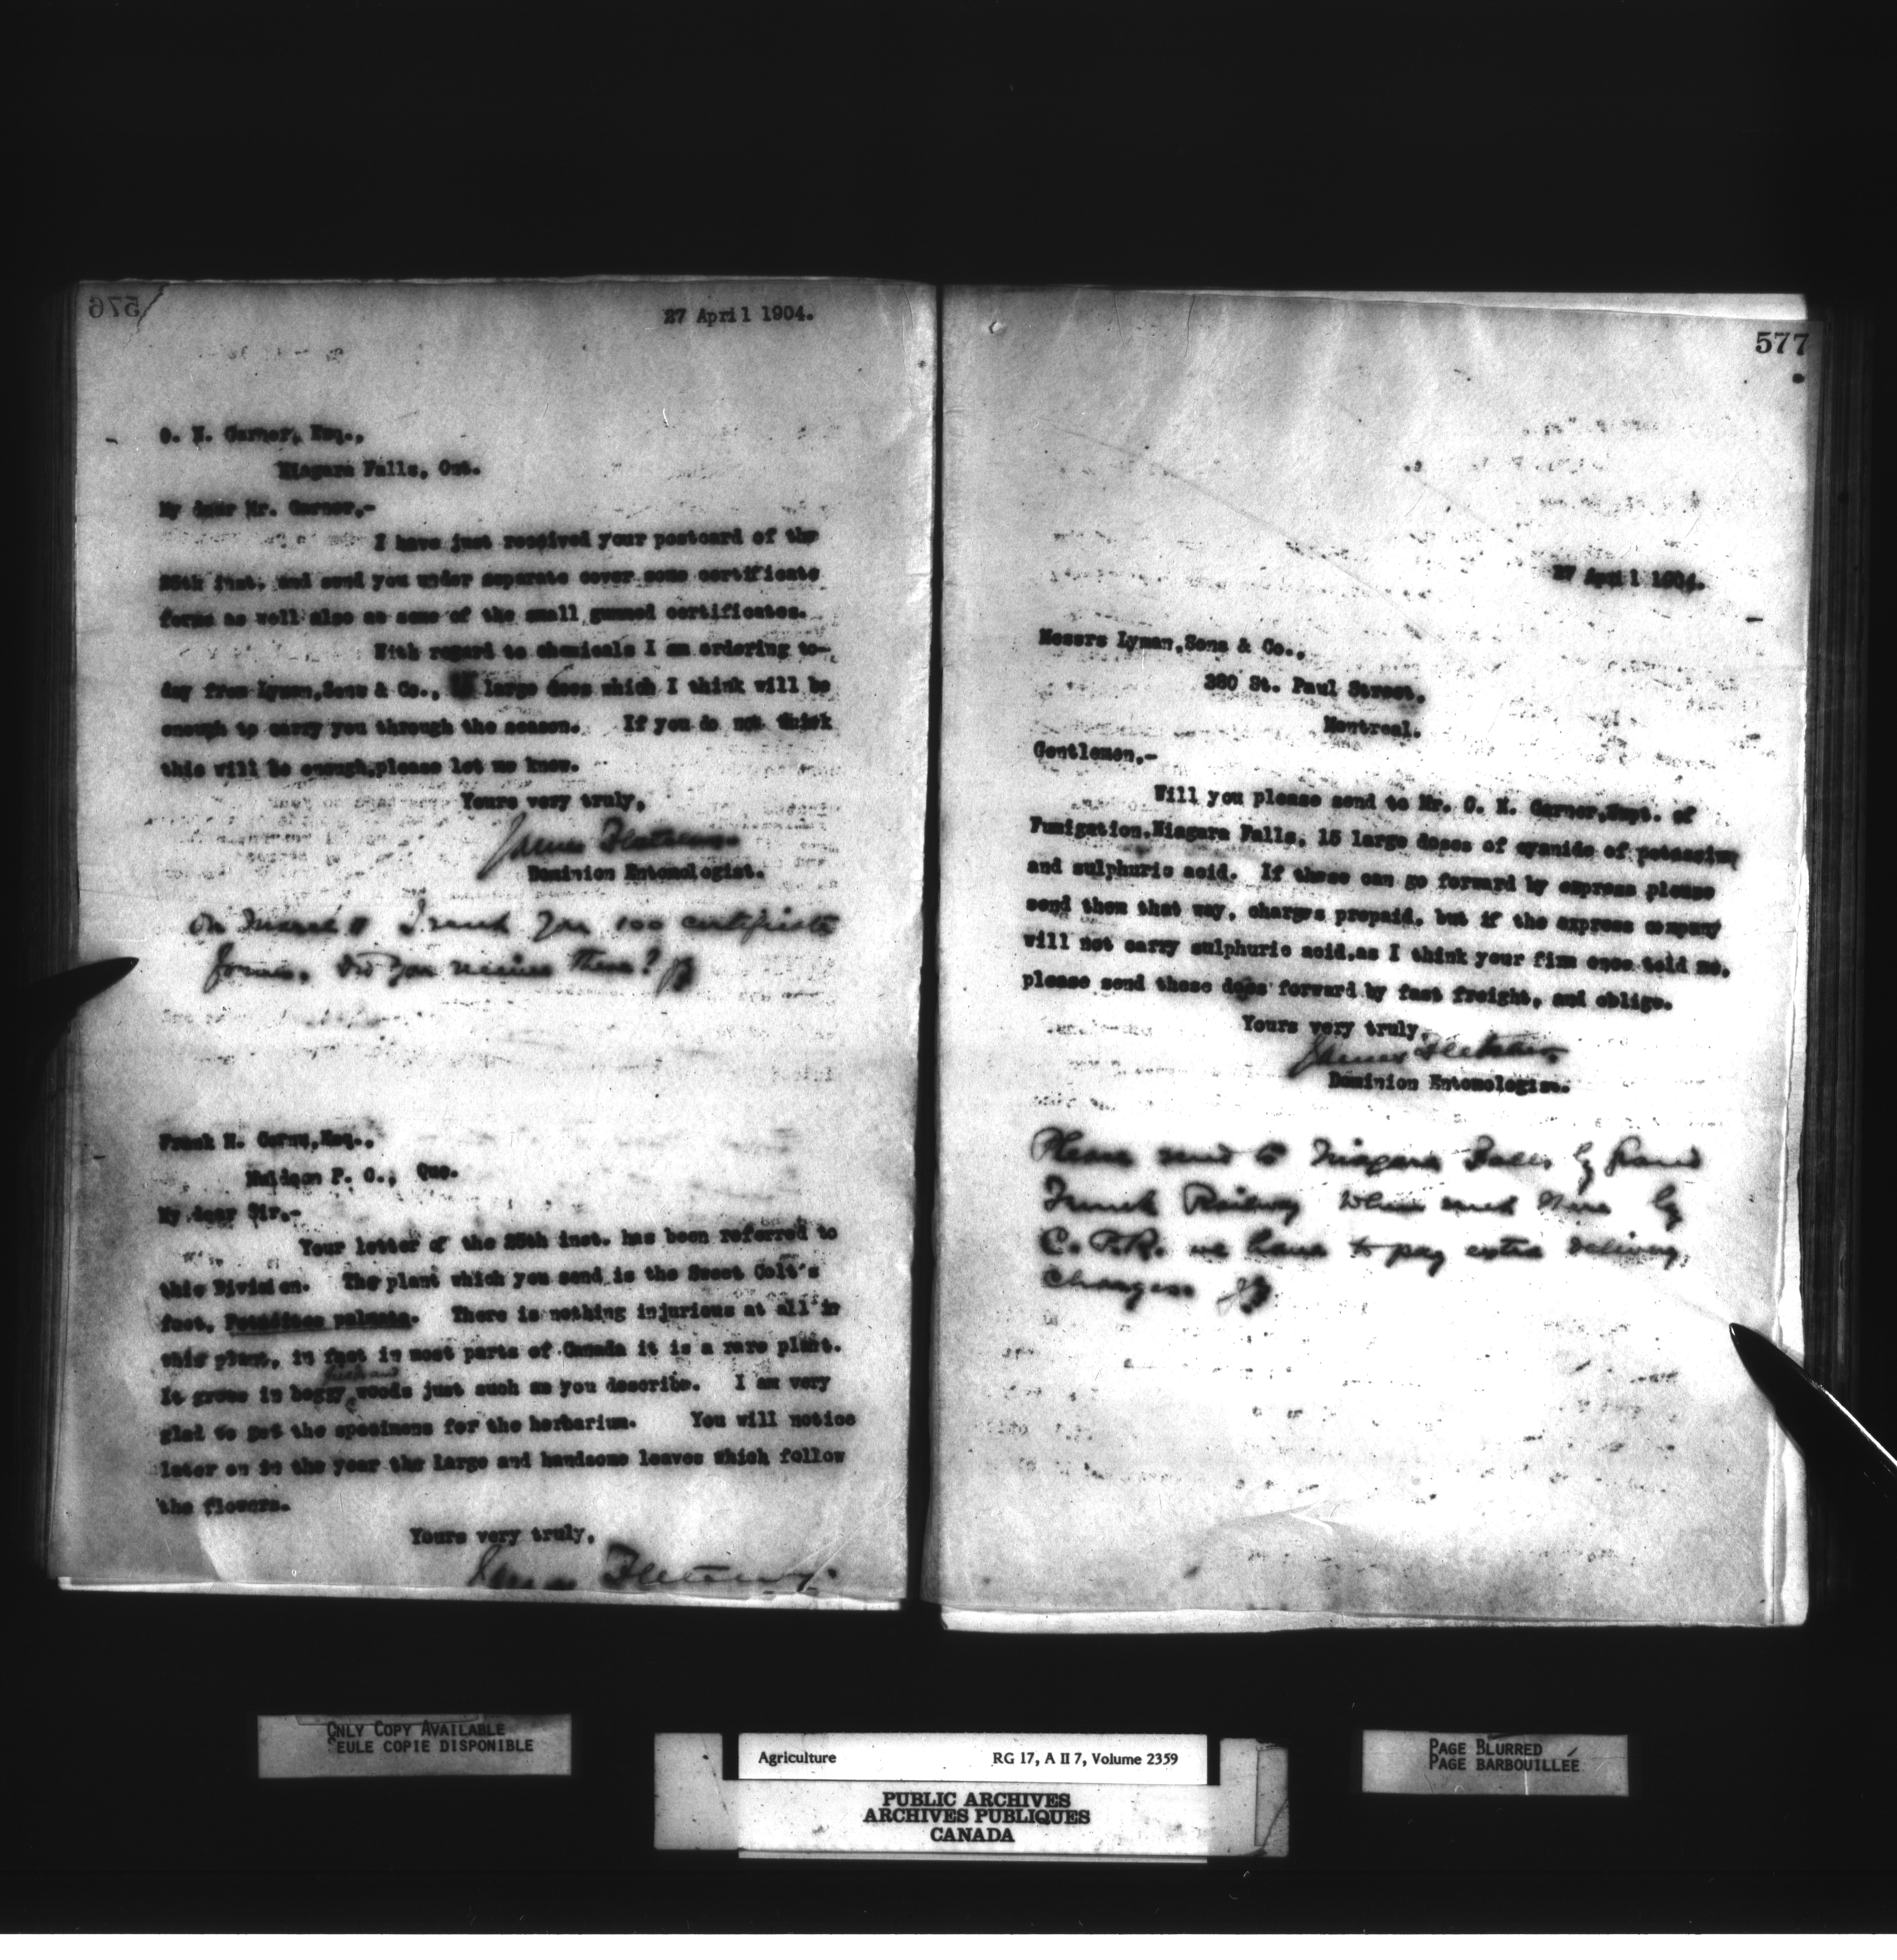 576
27 April 1904.
C. N. Garner, Esq.,
Niagara Falls, Ont.
My dear Mr. Garner,-
I have just received your postcard of the
25th inst. and send you under separate cover some certificate
forms as well also as some of the small gummed certificates.
With regard to chemicals I am ordering to-
day from Lyman,Sons & Co., large doses which I think will be
enough to carry you through the season. If you do not think
this will be enough,please let me know.
Yours very truly,
James Fletcher
Dominion Entomologist.
On I sent you 100 certificate
forms. Did you receive them? JF
Frank H.
Hudson P. O., Que.
My dear Sir,-
Your letter of the 25th inst. has been referred to
this Division. The plant which you send is the Sweet Colt's
foot, Petasites palmata. There is nothing injurious at all in
this plant, in fact in most parts of Canada it is a rare plant.
It grows in boggy woods just such as you describe. I am very
glad to get the specimens for the herbarium. You will notice
later on in the year the large and handsome leaves which follow
the flowers.
Yours very truly,
James Fletcher
577
27 April 1904.
Messrs Lyman,Sons & Co.,
380 St. Paul Street,
Montreal.
Gentlemen,-
Will you please send to Mr. C. N. Garner,Supt. of
Fumigation,Niagara Falls, 15 large doses of cyanide of potassium
and sulphuric acid. If these can go forward by express please
send them that way, charges prepaid, but if the express company
will not carry sulphuric acid,as I think your firm once told me,
please send these does forward by fast freight, and oblige.
Yours very truly,
James Fletcher
Dominion Entomologist.
Please send to Niagara Falls by Grand
Trunk Railway When sent there by
C.P.R. we have to pay extra delivery
charges JF
ONLY COPY AVAILABLE
SEULE COPIE DISPONIBLE
Agriculture RG 17, A II 7, Volume 2359
PUBLIC ARCHIVES
ARCHIVES PUBLIQUES
CANADA
PAGE BLURRED
PAGE BARBOUILLÉE